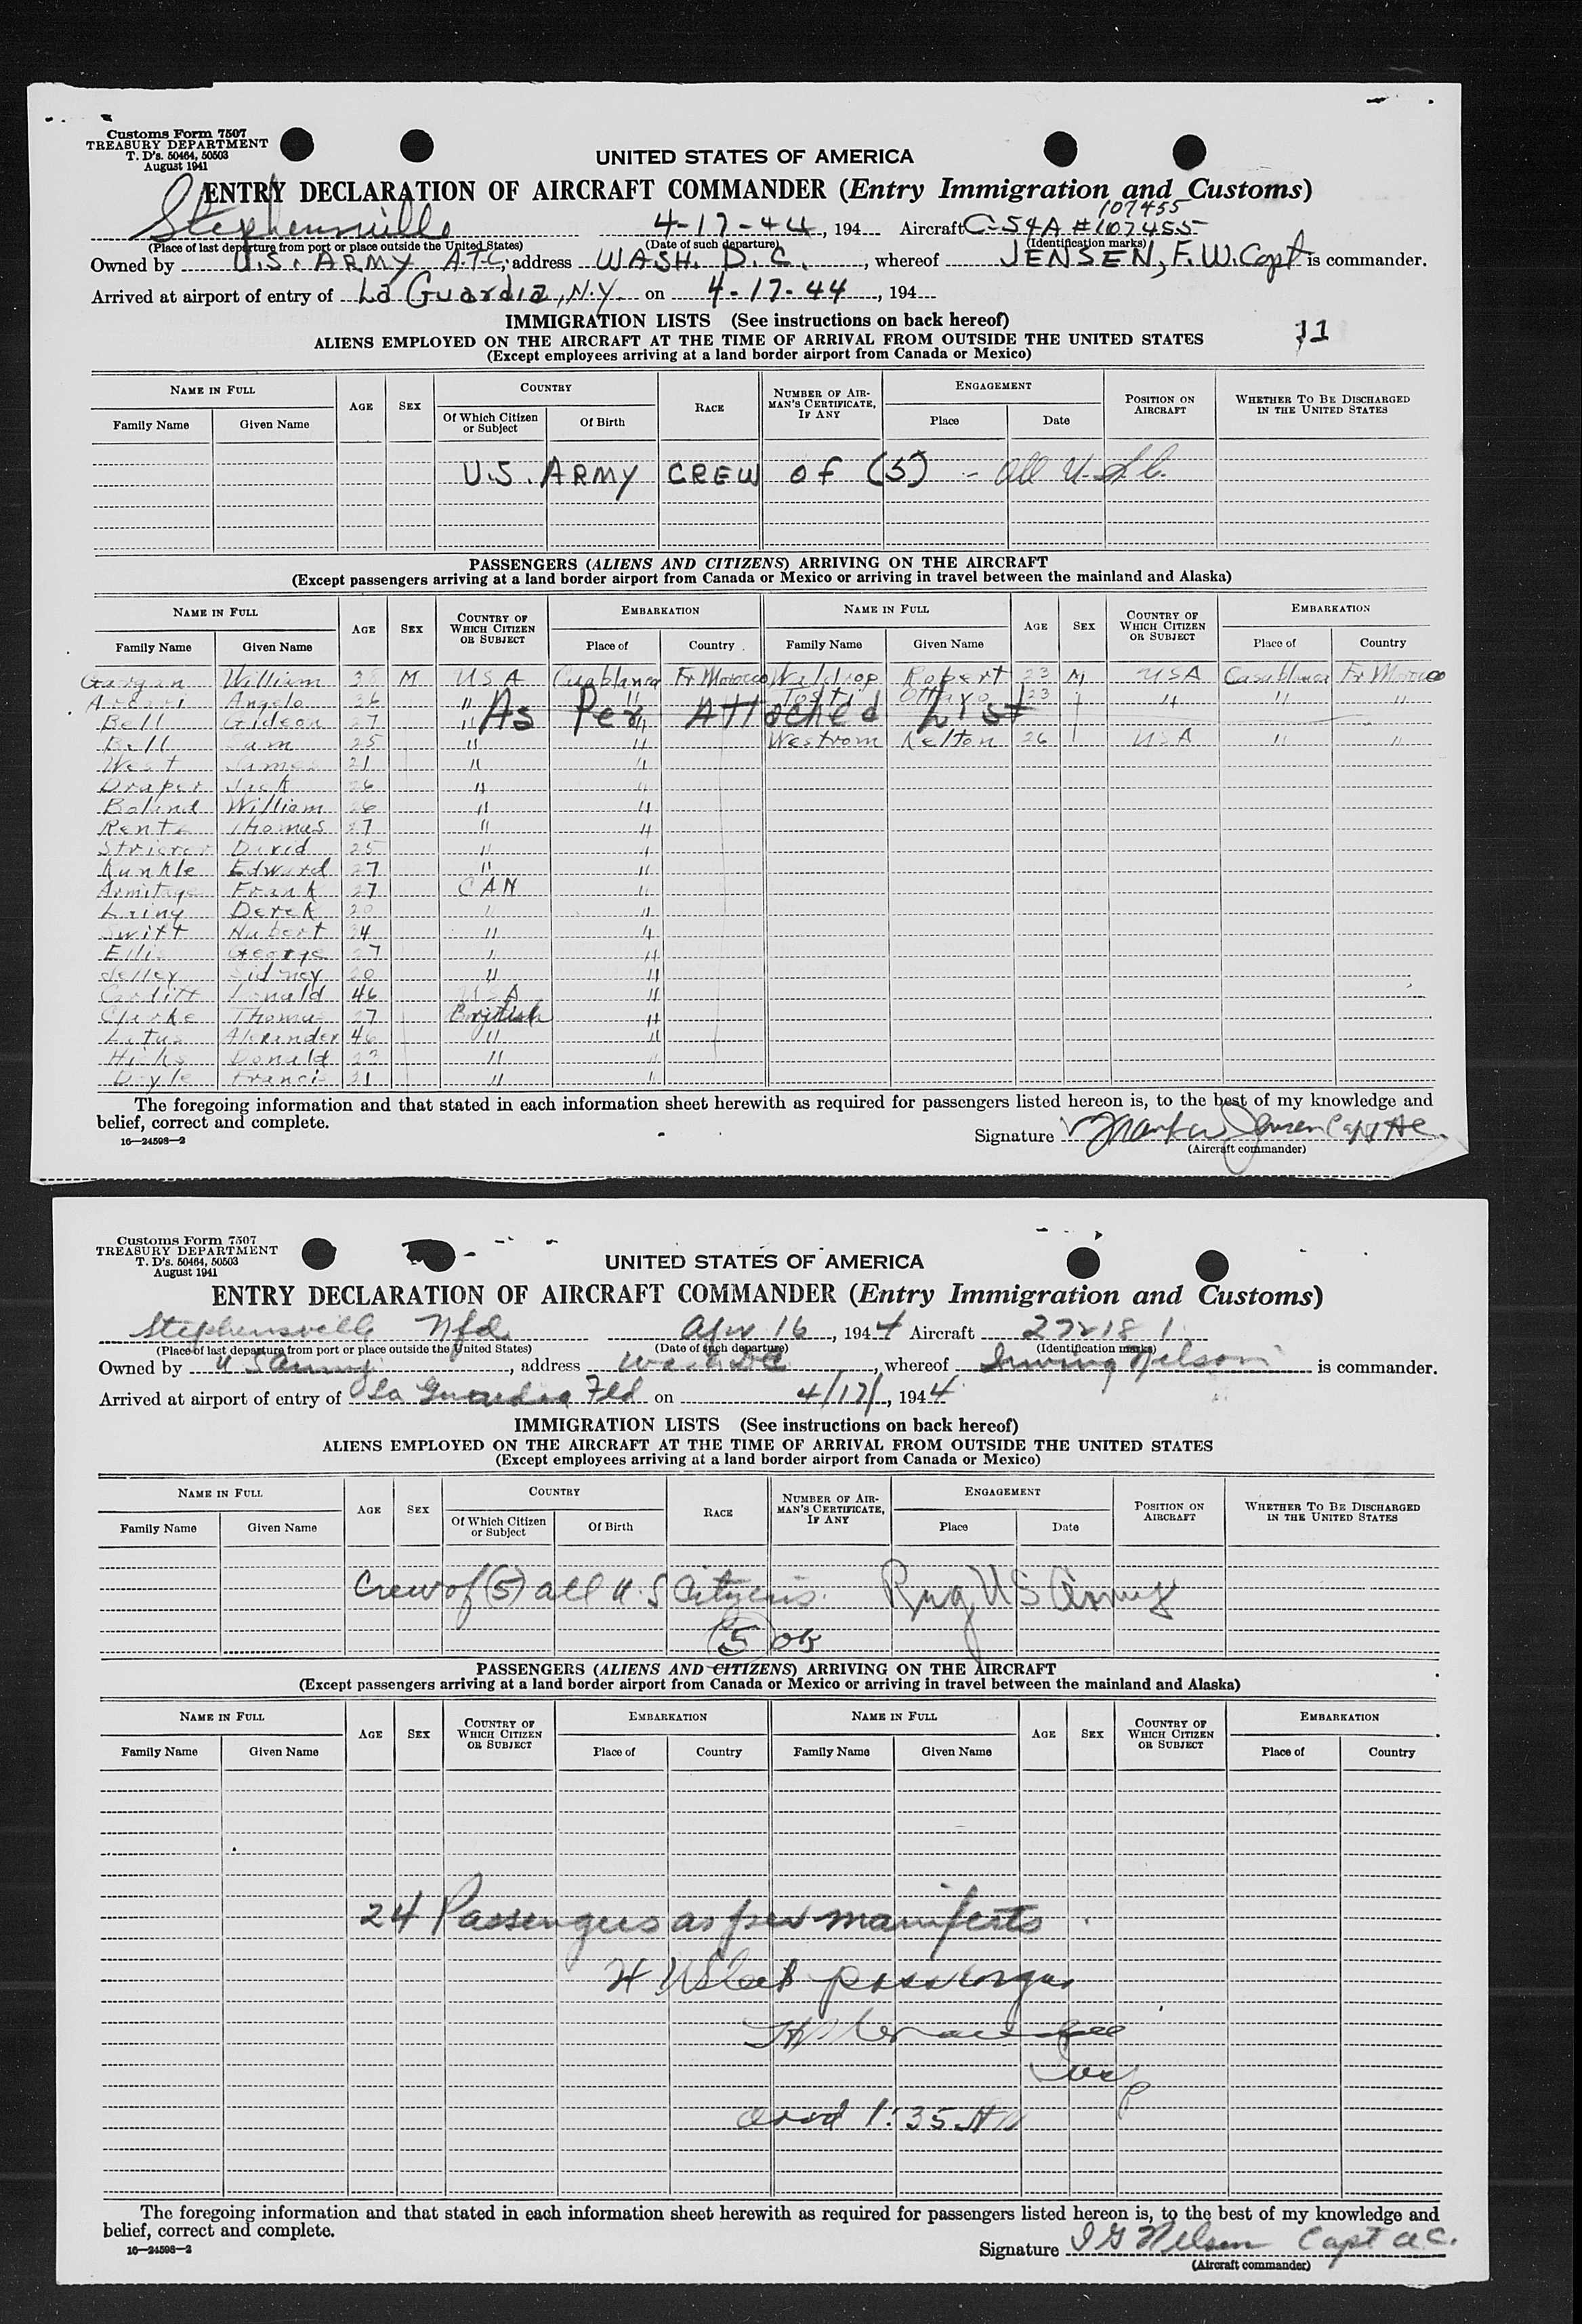 Customs Form 7507
TREASURY DEPARTMENT
T. D's. 50464, 50503
August 1941
UNITED STATES OF AMERICA
ENTRY DECLARATION OF AIRCRAFT COMMANDER (Entry Immigration and Customs)
107455
Stephenville 4-17-44, 194 Aircraft C-54A #107455
(Place of last departure from port or place outside the United States) (Date of such departure) (Identification marks)
Owned by U.S. ARMY A.T.C., address WASH. D.C., whereof JENSEN, F.W. Capt is commander.
Arrived at airport of entry of La Guardia, N.Y. on 4-17-44, 194
IMMIGRATION LISTS (See instructions on back hereof)
11
ALIENS EMPLOYED ON THE AIRCRAFT AT THE TIME OF ARRIVAL FROM OUTSIDE THE UNITED STATES
(Except employees arriving at a land border airport from Canada or Mexico)
NAME IN FULL AGE SEX COUNTRY RACE NUMBER OF AIRMAN'S CERTIFICATE, IF ANY ENGAGEMENT POSITION ON AIRCRAFT WHETHER TO BE DISCHARGED IN THE UNITED STATES
Family Name Given Name Of Which Citizen or Subject Of Birth Place Date
U.S. ARMY CREW OF (5) - All U.S.C.
PASSENGERS (ALIENS AND CITIZENS) ARRIVING ON THE AIRCRAFT
(Except passengers arriving at a land border airport from Canada or Mexico or arriving in travel between the mainland and Alaska)
NAME IN FULL AGE SEX COUNTRY OF WHICH CITIZEN OR SUBJECT EMBARKATION NAME IN FULL AGE SEX COUNTRY OF WHICH CITIZEN OR SUBJECT EMBARKATION
Family Name Given Name Place of Country Family Name Given Name Place of Country
Gargan William 38 M USA Casablanca Fr Morocco Waldrop Robert 23 M USA Casablanca Fr Morocco
Angelo 26 " " Testi 23 " " "
As Per Attached List
Bell Gideon 27 " "
Bell Sam 25 " " Westrom Kelton 26 USA " "
West James 21 " "
Draper Jack 26 " "
Boland William 26 " "
Rentz Thomas 27 " "
David 25 " "
Kunkle Edward 27 " "
Armitage Frank 27 CAN "
Derek 20 " "
Swift Hubert 34 " "
Ellis George 27 " "
Jelley Sidney 20 " "
Donald 46 USA "
Clarke Thomas 27 British "
Alexander 46 " "
Hicks Donald 23 " "
Doyle Francis 31 " "
The foregoing information and that stated in each information sheet herewith as required for passengers listed hereon is, to the best of my knowledge and
belief, correct and complete.
16—24598—2
Signature Frank W Jensen Capt AC
(Aircraft commander)
Customs Form 7507
TREASURY DEPARTMENT
T. D's. 50464, 50503
August 1941
UNITED STATES OF AMERICA
ENTRY DECLARATION OF AIRCRAFT COMMANDER (Entry Immigration and Customs)
Stephensville Nfd. Apr 16, 1944 Aircraft 272181
(Place of last departure from port or place outside the United States) (Date of such departure) (Identification marks)
Owned by U S Army, address Wash DC, whereof Irving Nelson is commander.
Arrived at airport of entry of La Guardia Fld on 4/17/, 1944
IMMIGRATION LISTS (See instructions on back hereof)
ALIENS EMPLOYED ON THE AIRCRAFT AT THE TIME OF ARRIVAL FROM OUTSIDE THE UNITED STATES
(Except employees arriving at a land border airport from Canada or Mexico)
NAME IN FULL AGE SEX COUNTRY RACE NUMBER OF AIRMAN'S CERTIFICATE, IF ANY ENGAGEMENT POSITION ON AIRCRAFT WHETHER TO BE DISCHARGED IN THE UNITED STATES
Family Name Given Name Of Which Citizen or Subject Of Birth Place Date
Crew of (5) all U.S Citizens. Reg US Army
(5) ok
PASSENGERS (ALIENS AND CITIZENS) ARRIVING ON THE AIRCRAFT
(Except passengers arriving at a land border airport from Canada or Mexico or arriving in travel between the mainland and Alaska)
NAME IN FULL AGE SEX COUNTRY OF WHICH CITIZEN OR SUBJECT EMBARKATION NAME IN FULL AGE SEX COUNTRY OF WHICH CITIZEN OR SUBJECT EMBARKATION
Family Name Given Name Place of Country Family Name Given Name Place of Country
24 Passengers as per manifests
passenger
arrd 1:35 AM
The foregoing information and that stated in each information sheet herewith as required for passengers listed hereon is, to the best of my knowledge and
belief, correct and complete.
16—24598—2
Signature I G Nelson Capt A.C.
(Aircraft commander)